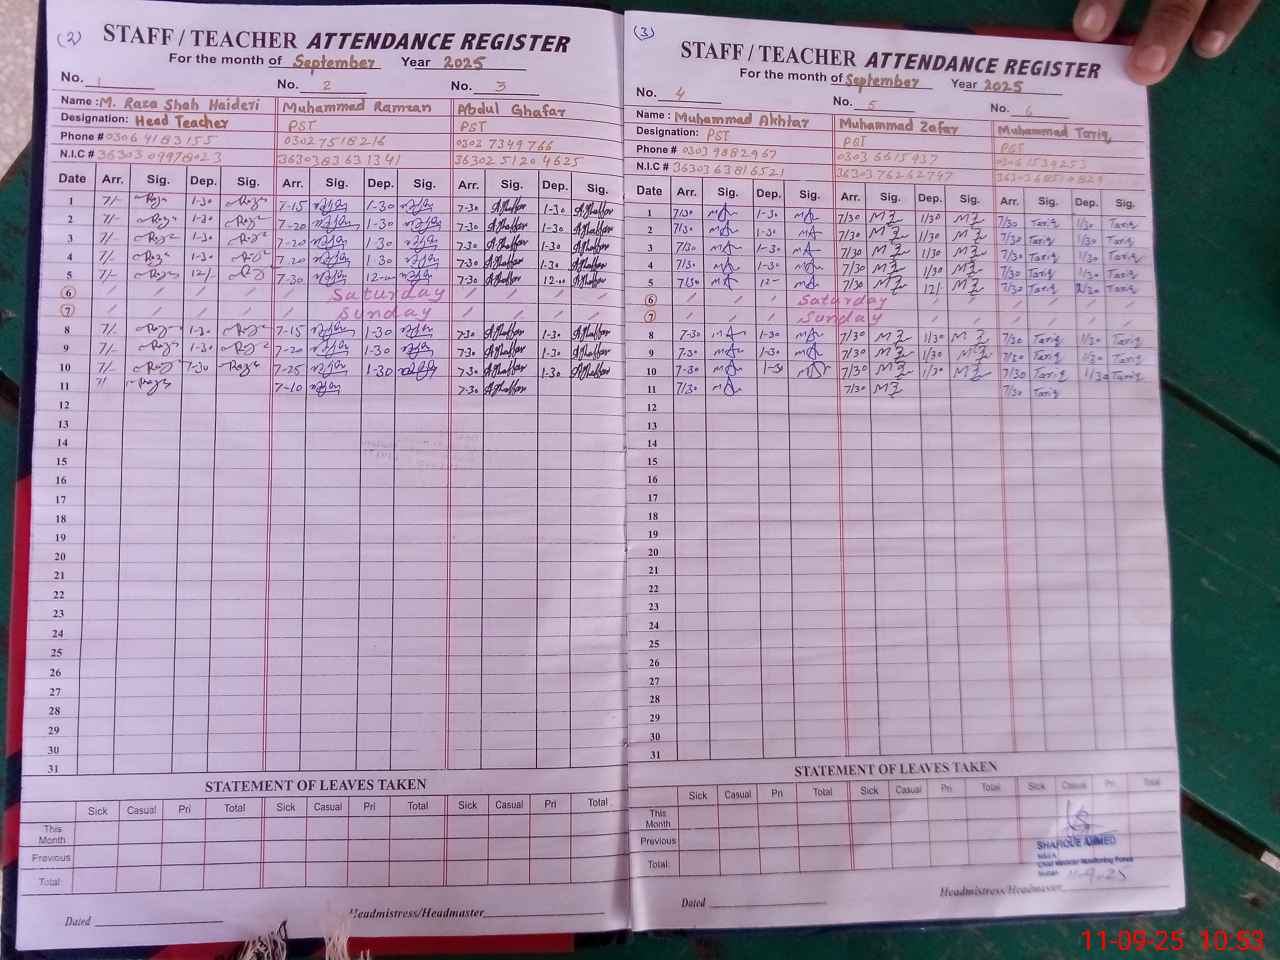 (2)
STAFF / TEACHER ATTENDANCE REGISTER
For the month of September Year 2025
No. 1 No. 2 No. 3
Name : M. Raza Shah Haideri Muhammad Ramzan Abdul Ghafar
Designation: Head Teacher PST PST
Phone # 0306 4183155 0302 7518216 0302 7349766
N.I.C # 36303 0997802 3 36303 83 63 134 1 36302 5120 4625
Date Arr. Sig. Dep. Sig. Arr. Sig. Dep. Sig. Arr. Sig. Dep. Sig.
1 7/- 1-30 7-15 1-30 7-30 AGhaffar 1-30 AGhaffar
2 7/- 1-30 7-20 1-30 7-30 AGhaffar 1-30 AGhaffar
3 7/- 1-30 7-20 1-30 7-30 AGhaffar 1-30 AGhaffar
4 7/- 1-30 7-20 1-30 7-30 AGhaffar 1-30 AGhaffar
5 7/- 12/- 7-30 12-00 7-30 AGhaffar 12-00 AGhaffar
6 Saturday
7 Sunday
8 7/- 1-30 7-15 1-30 7-30 AGhaffar 1-30 AGhaffar
9 7/- 1-30 7-20 1-30 7-30 AGhaffar 1-30 AGhaffar
10 7/- 7-30 7-25 1-30 7-30 AGhaffar 1-30 AGhaffar
11 7/ 7-10 7-30 AGhaffar
12
13
14
15
16
17
18
19
20
21
22
23
24
25
26
27
28
29
30
31
STATEMENT OF LEAVES TAKEN
Sick Casual Pri Total Sick Casual Pri Total Sick Casual Pri Total
This Month
Previous
Total:
Dated Headmistress/Headmaster
(3)
STAFF / TEACHER ATTENDANCE REGISTER
For the month of September Year 2025
No. 4 No. 5 No. 6
Name : Muhammad Akhtar Muhammad Zafar Muhammad Tariq
Designation: PST PST PST
Phone # 0303 9882967 0303 6615937 0306 1539253
N.I.C # 36303 6381652 1 36303 7626279 7
Date Arr. Sig. Dep. Sig. Arr. Sig. Dep. Sig. Arr. Sig. Dep. Sig.
1 7/30 MA 1-30 MA 7/30 MZ 1/30 MZ 7/30 Tariq 1/30 Tariq
2 7/30 MA 1-30 MA 7/30 MZ 1/30 MZ 7/30 Tariq 1/30 Tariq
3 7/30 MA 1-30 MA 7/30 MZ 1/30 MZ 7/30 Tariq 1/30 Tariq
4 7/30 MA 1-30 MA 7/30 MZ 1/30 MZ 7/30 Tariq 1/30 Tariq
5 7/30 MA 12- MA 7/30 MZ 12/- MZ 7/30 Tariq Tariq
6 Saturday
7 Sunday
8 7-30 MA 1-30 MA 7/30 MZ 1/30 MZ 7/30 Tariq 1/30 Tariq
9 7-30 MA 1-30 MA 7/30 MZ 1/30 MZ 7/30 Tariq 1/30 Tariq
10 7-30 MA 1-30 MA 7/30 MZ 1/30 MZ 7/30 Tariq 1/30 Tariq
11 7/30 MA 7/30 MZ 7/30 Tariq
12
13
14
15
16
17
18
19
20
21
22
23
24
25
26
27
28
29
30
31
STATEMENT OF LEAVES TAKEN
Sick Casual Pri Total Sick Casual Pri Total Sick Casual Pri Total
This Month
Previous
Total:
SHAFIQUE AHMED
Chief Minister Monitoring Force
11-9-25
Dated Headmistress/Headmaster
11-09-25 10:53